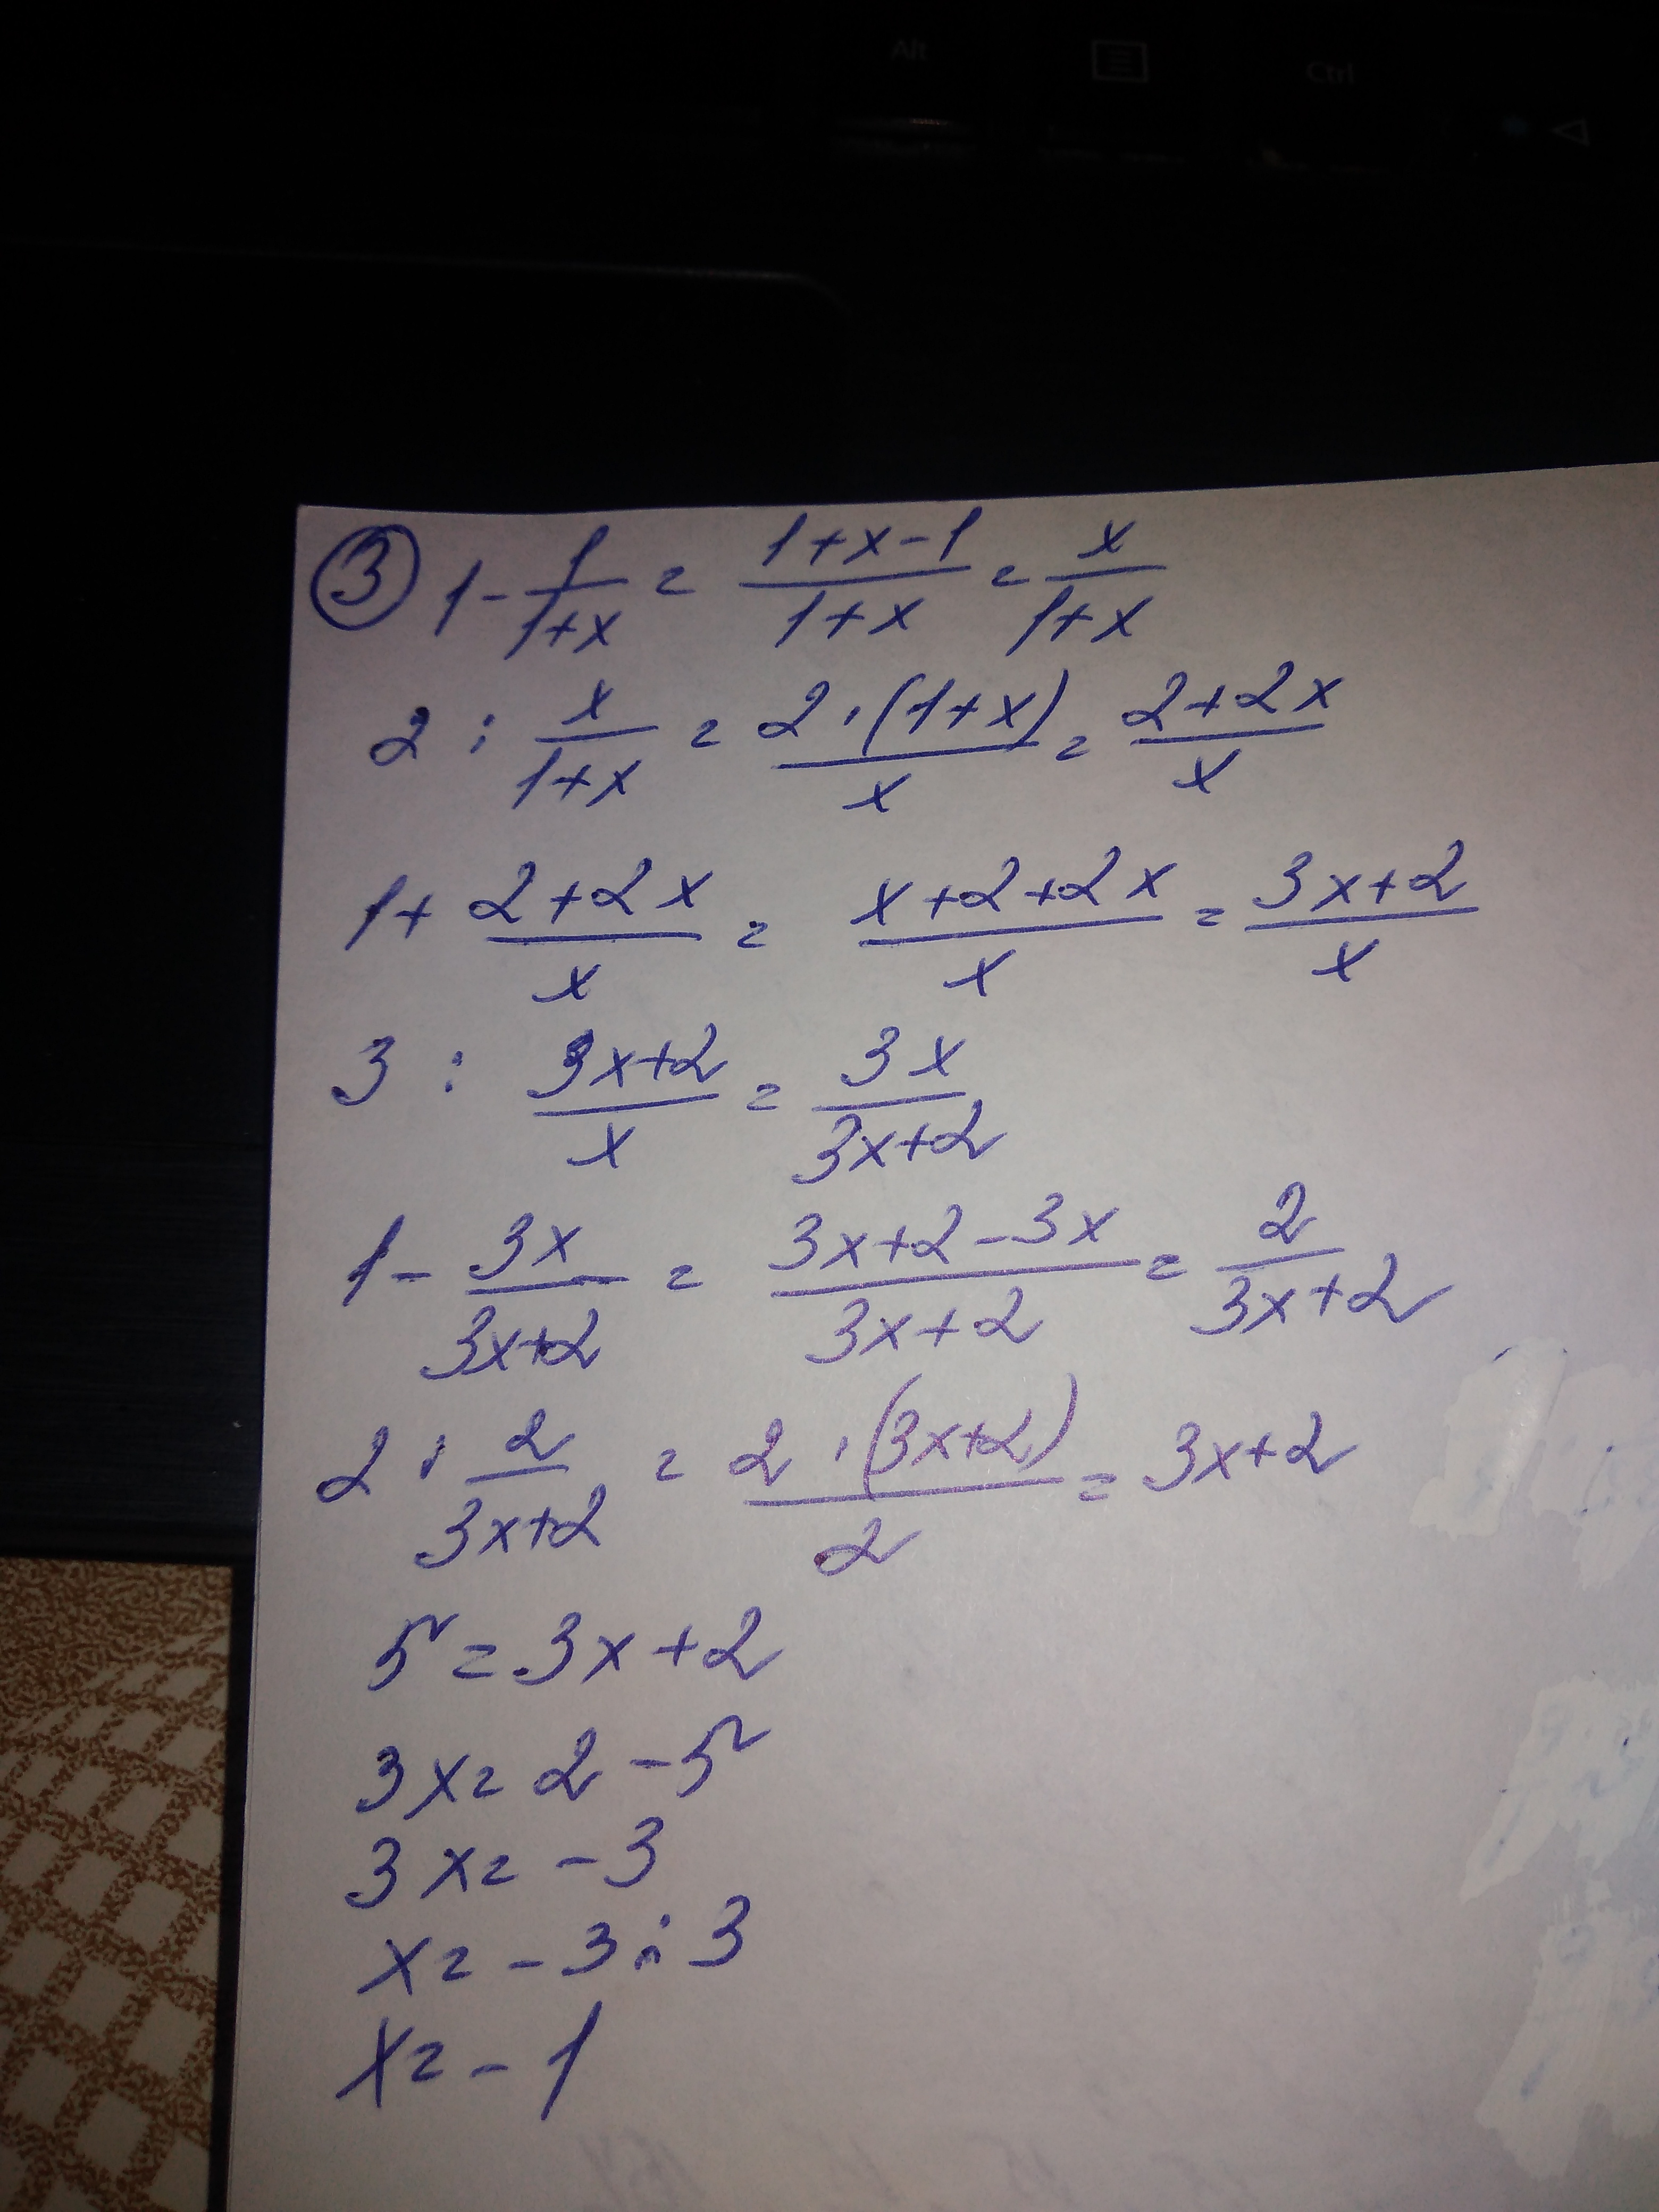 Alt Ctrl
③ 1 - 1/(1+x) = (1+x-1)/(1+x) = x/(1+x)
2 : x/(1+x) = 2·(1+x)/x = (2+2x)/x
1 + (2+2x)/x = (x+2+2x)/x = (3x+2)/x
3 : (3x+2)/x = 3x/(3x+2)
1 - 3x/(3x+2) = (3x+2-3x)/(3x+2) = 2/(3x+2)
2 : 2/(3x+2) = 2·(3x+2)/2 = 3x+2
5 = 3x+2
3x = 2 - 5
3x = -3
x = -3 : 3
x = -1